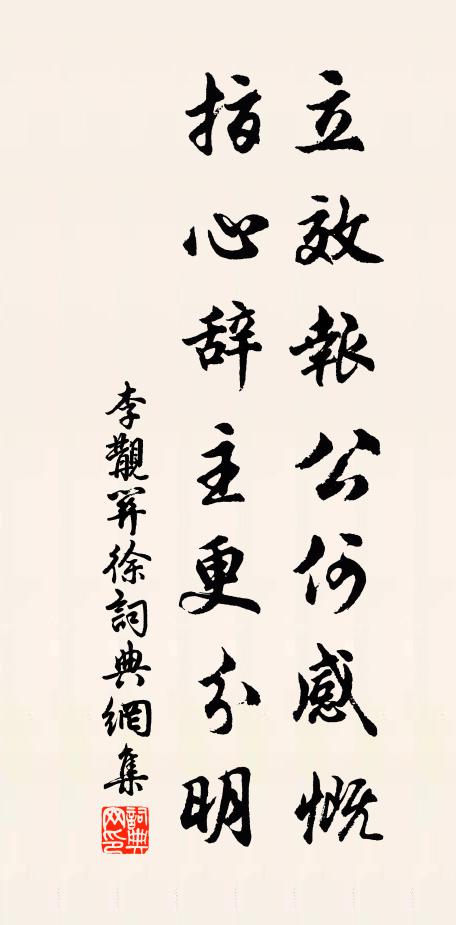 立效報公何感慨
指心辞主更分明
李覯 弉徐詞典網集
詞典网印